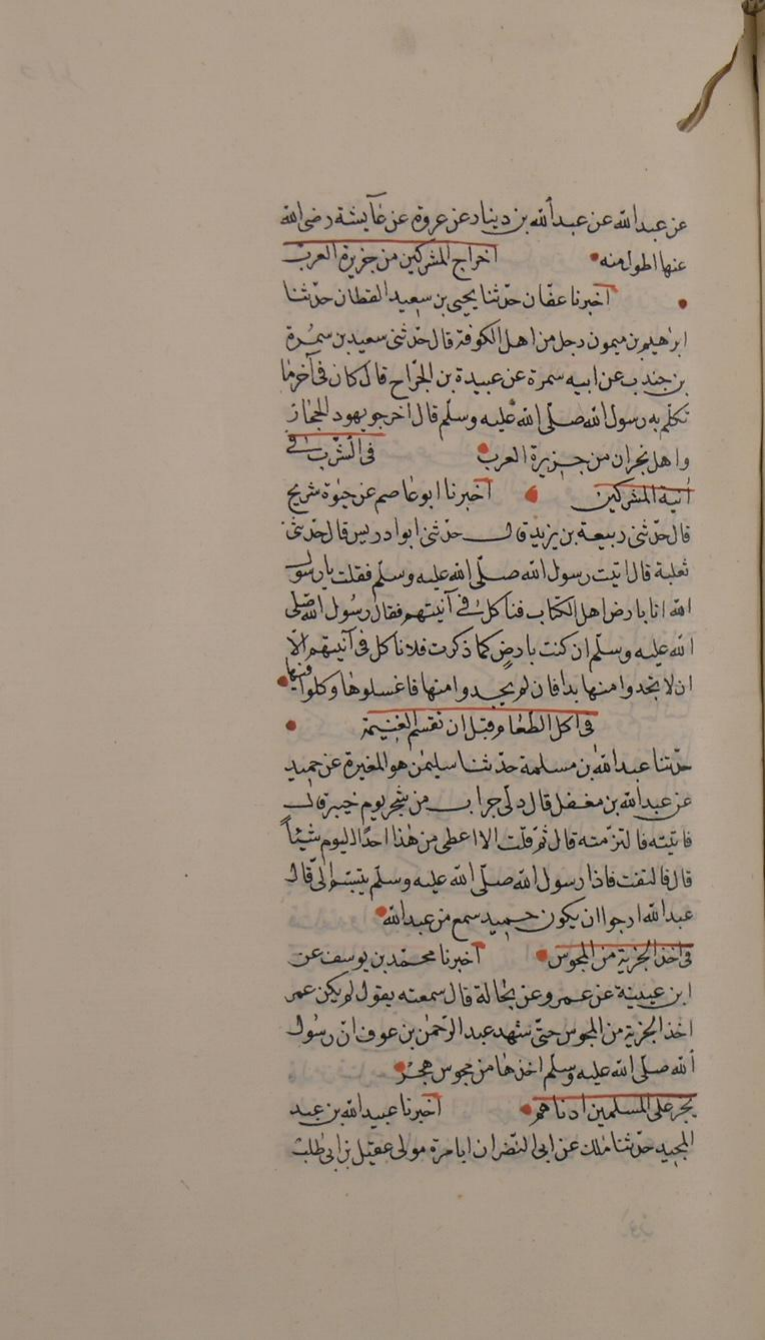 عن عبد الله عن عبد الله بن دينار عن عروة عن عآيشة رضى الله
عنها اطول منه اخراج المشركين من جزيرة العرب
اخبرنا عفان حدثنا يحيى بن سعيد القطان حدثنا
ابرهيم بن ميمون رجل من اهل الكوفة قال حدثنى سعيد بن سمرة
بن جندب عن ابيه سمرة عن عبيدة بن الجراح قال كان فى آخر ما
تكلم به رسول الله صلى الله عليه وسلم قال اخرجو يهود الحجاز
واهل نجران من جزيرة العرب فى الشرب فى
آنية المشركين اخبرنا ابو عاصم عن حيوة شريح
قال حدثنى ربيعة بن يزيد قال حدثنى ابوا دريس قال حدثنى
ثعلبة قال اتيت رسول الله صلى الله عليه وسلم فقلت يا رسول
الله انا بارض اهل الكتاب فنأكل فى آنيتهم فقال رسول الله صلى
الله عليه وسلم ان كنت بارض كما ذكرت فلا تأكل فى آنيتهم الا
ان لا تجدوا منها بدا فان لم يجدوا منها فاغسلوها وكلوا فيها
فى اكل الطعام قبل ان تقسم الغنيمة
حدثنا عبد الله بن مسلمة حدثنا سليمن هو المغيرة عن حميد
عن عبد الله بن مغفل قال دلى جراب من شجر يوم خيبر قال
فاتيته فالتزمته قال ثم قلت الا اعطى من هذا احدا اليوم شيئا
قال فالتفت فاذا رسول الله صلى الله عليه وسلم يتبسم الى قال
عبد الله ارجوا ان يكون حميد سمع من عبد الله
فى اخذ الجزية من المجوس اخبرنا محمد بن يوسف عن
ابن عيينة عن عمرو عن بجالة قال سمعته يقول لم يكن عمر
اخذ الجزية من المجوس حتى شهد عبد الرحمن بن عوف ان رسول
الله صلى الله عليه وسلم اخذها من مجوس هجر
يجر على المسلمين ادناهم اخبرنا عبيد الله بن عبد
المجيد حدثنا ملك عن ابى النضر ان ابا مرة مولى عقيل بن ابى طلب